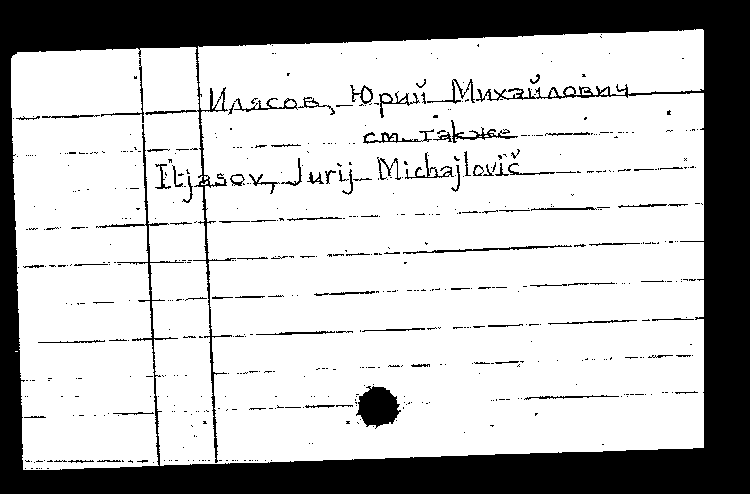 Илясов, Юрий Михайлович
см. также
Iljasov, Jurij Michajlovič